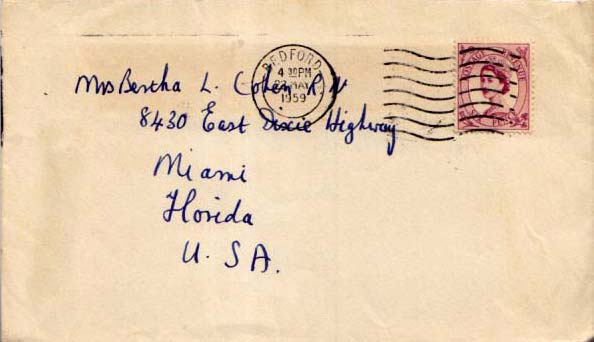 BEDFORD
4 30PM
MAY
1959
Mrs Bertha L. Cohen R.N
8430 East Dixie Highway
Miami
Florida
U. S A.